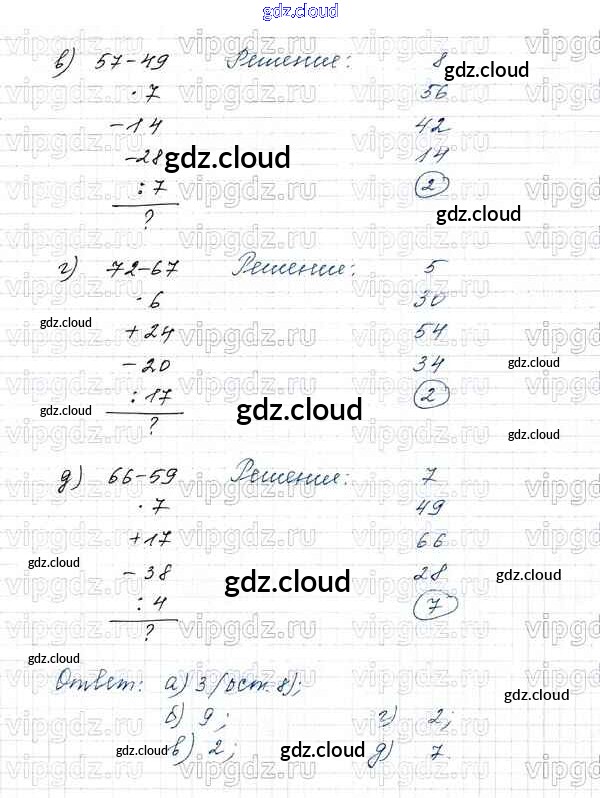 gdz.cloud
в) 57-49 Решение: 8
· 7 56
-14 42
-28 14
: 7 2
?
г) 72-67 Решение: 5
· 6 30
+24 54
-20 34
: 17 2
?
д) 66-59 Решение: 7
· 7 49
+17 66
-38 28
: 4 7
?
Ответ: а) 3 (ост. 8);
б) 9; г) 2;
в) 2; д) 7.